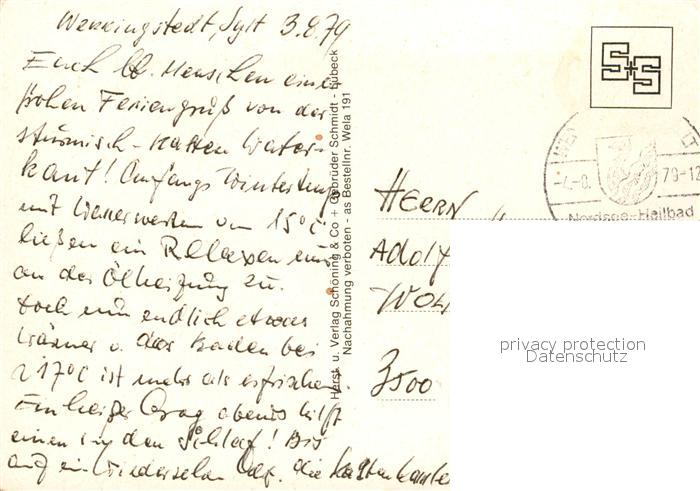 Wenningstedt, Sylt 3.8.79
Euch lb. Menschen einen
frohen Feriengruß von der
stürmisch-kalten Water-
kant! Anfangs Wintertemp.
mit Wasserwerten um 15°C
ließen ein Relaxen nur
an der Ölheizung zu.
doch nun endlich etwas
wärmer u. das Baden bei
~17°C ist mehr als erfrischend.
Ein heißer Grog abends hilft
einen in den Schlaf! Bis
auf ein Wiedersehn
Herst. u. Verlag Schöning & Co + Gebrüder Schmidt - Lübeck
Nachahmung verboten - as Bestellnr. Wela 191
S+S
-4.-8. 79-12
Nordsee-Heilbad
HERRN
ADOLF
3500
privacy protection
Datenschutz